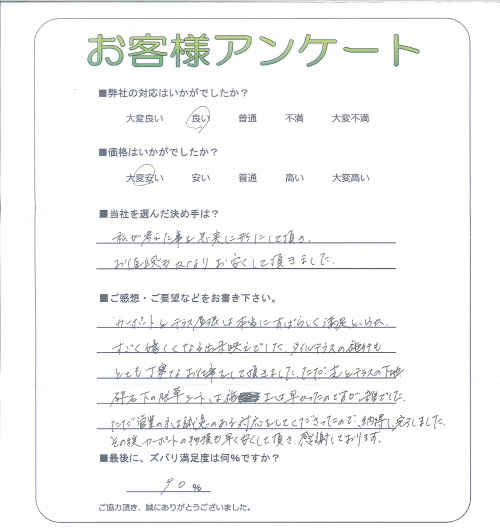 お客様アンケート
■弊社の対応はいかがでしたか？
大変良い 良い 普通 不満 大変不満
■価格はいかがでしたか？
大変安い 安い 普通 高い 大変高い
■当社を選んだ決め手は？
私が考えた事を忠実に形にして頂き、
お値段も よりお安くして頂きました。
■ご感想・ご要望などをお書き下さい。
カーポートとテラス屋根は本当にすばらしく満足というか、
すごく嬉しくなる出来映えでした。タイルテラスの施行も
とても丁寧なお仕事をして頂きました。ただ、 とテラスの下地
砕石下の防草シートは 早かったのですが雑でした。
ただ営業の は誠意のある対応をしてくださったので、納得し、完了しました。
その後、カーポートの も早く安くして頂き、感謝しております。
■最後に、ズバリ満足度は何％ですか？
90 %
ご協力頂き、誠にありがとうございました。